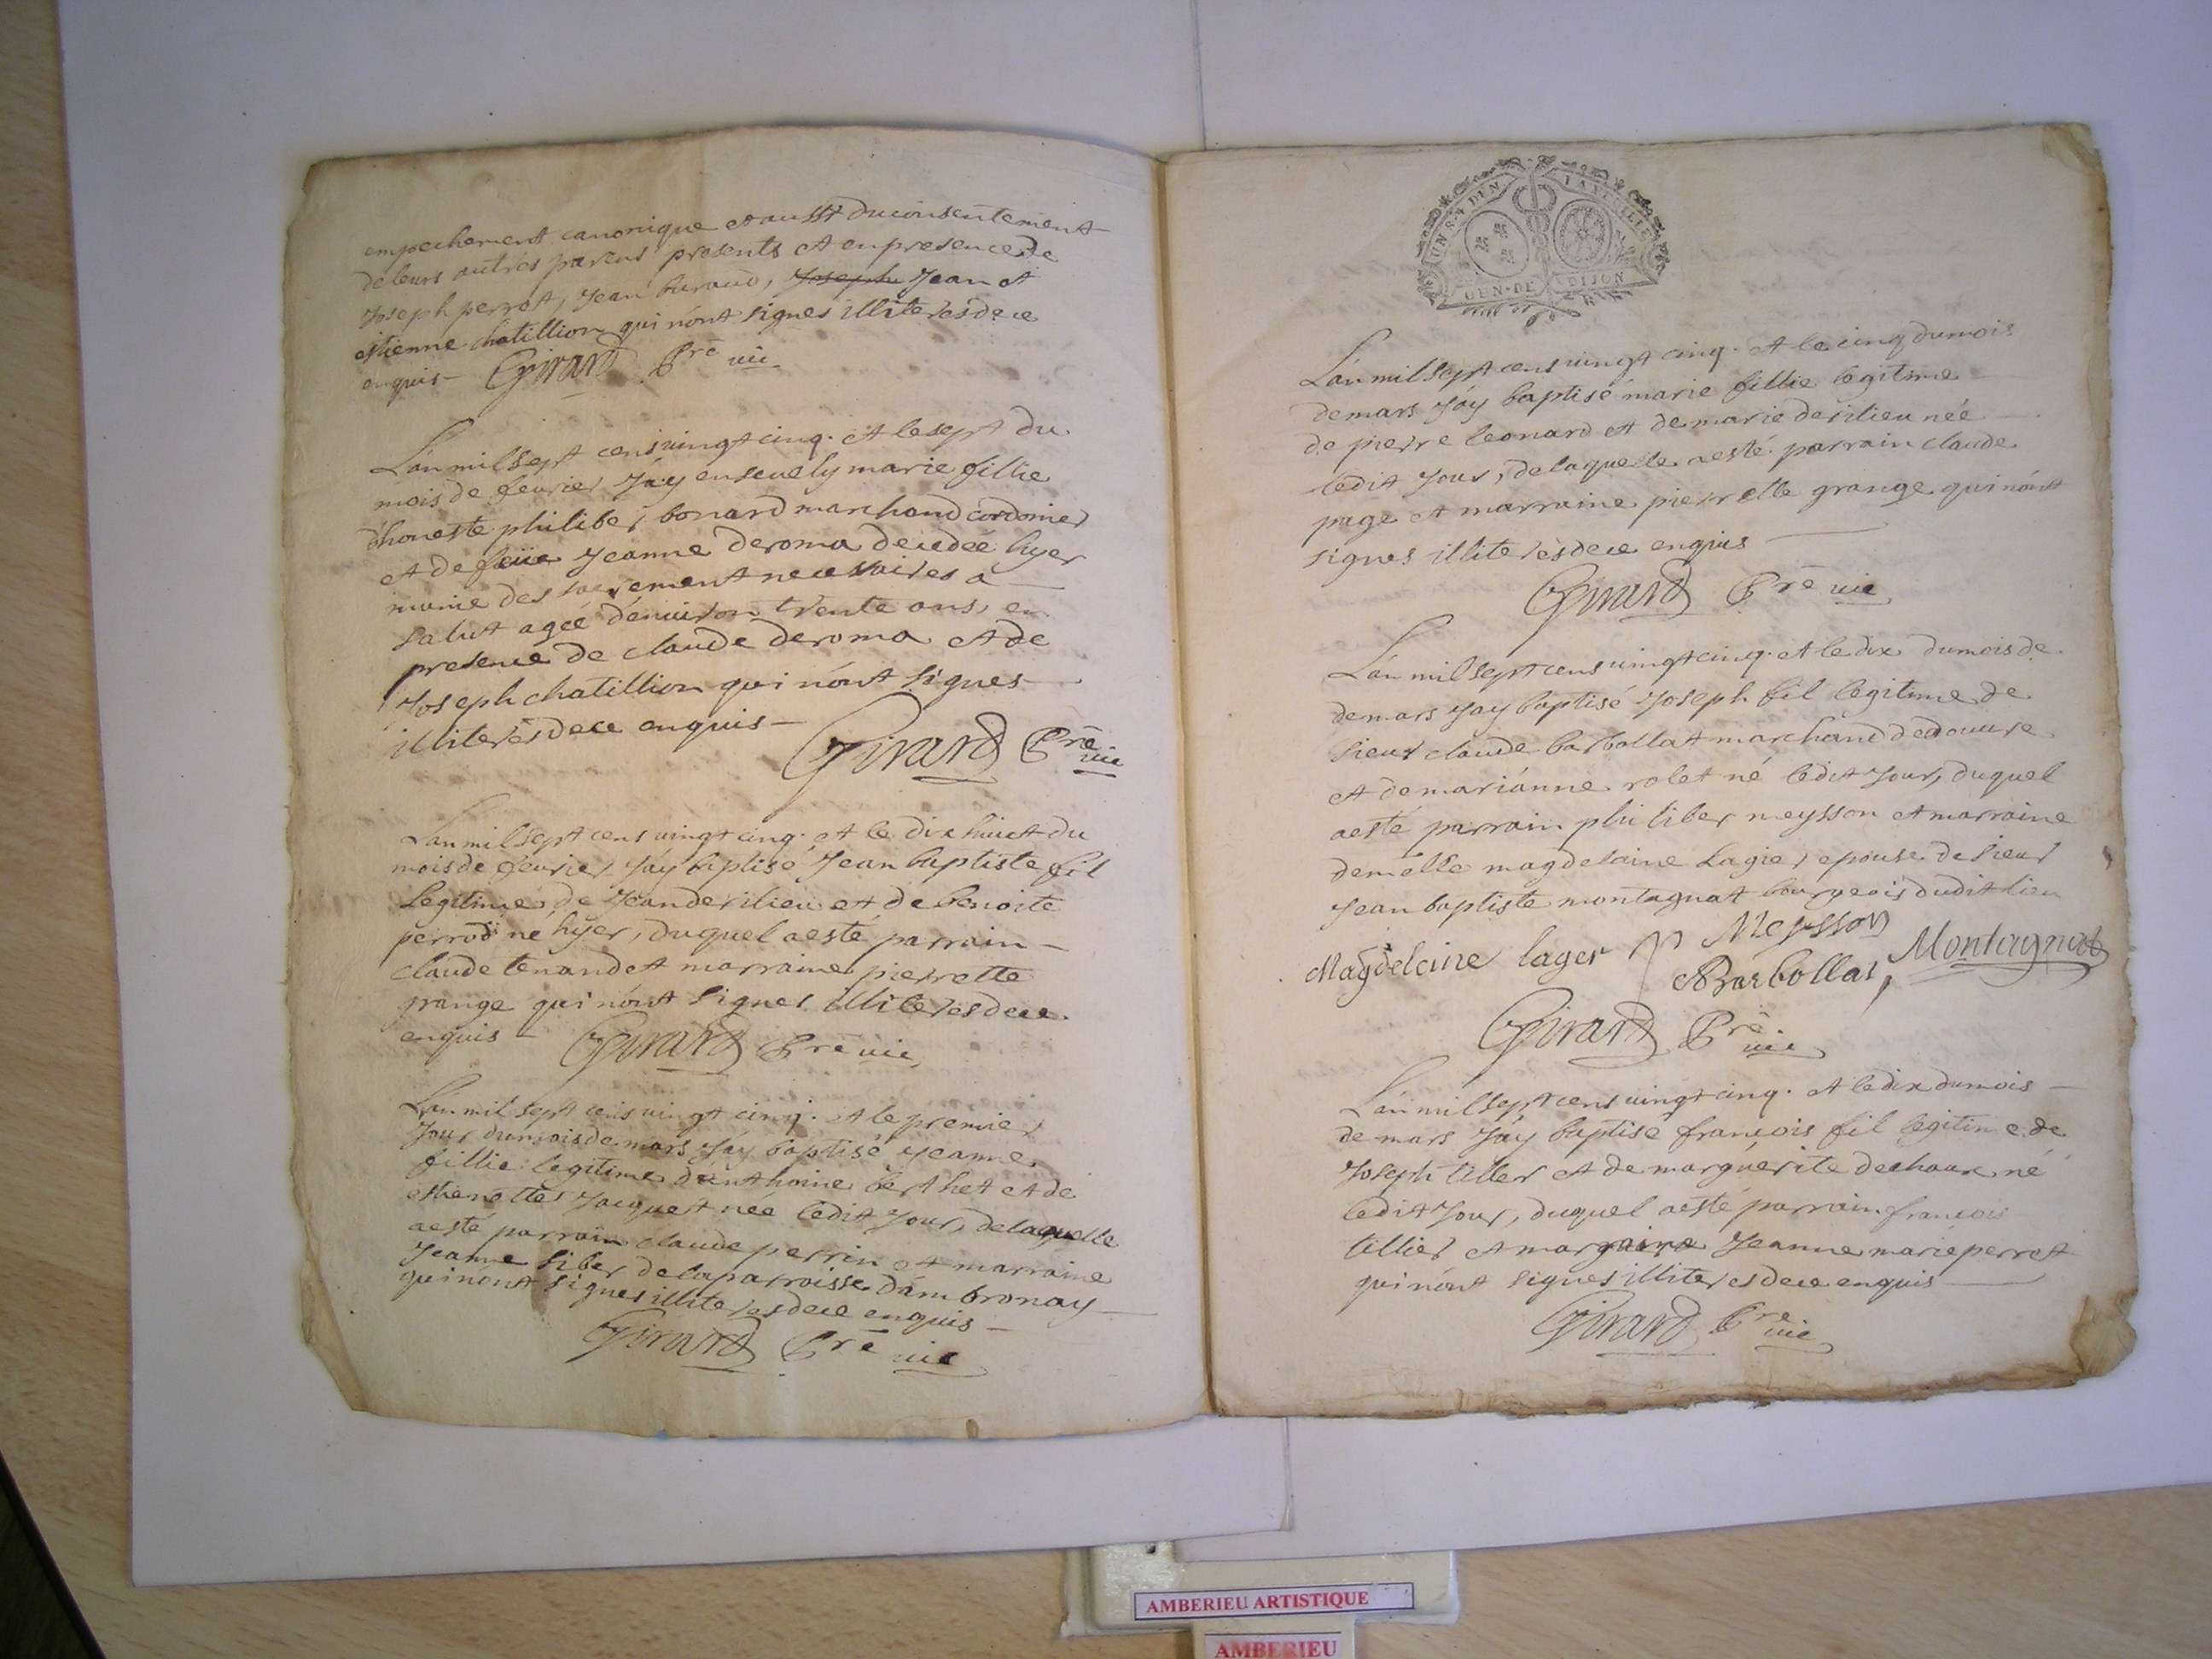 empechement canonique et aussi du consentement
de leurs autres parens presents et en presence de
Joseph perrot, Jean Joseph Jean et
estienne chatillion qui nónt signes illiterés de ce
enquis Girard Pre vic
Lán mil sept cens vingt cinq. et le sept du
mois de fevrier Jáy ensevely marie fillie
dhoneste philiber bonard marchand cordonier
et de feüe Jeanne deroma decedeé hyer
munie des sacrement necessaires a
salut ageé dénviron trente ans, en
presence de claude deroma et de
Joseph chatillion qui nónt signes
illiterés de ce enquis
Girard Pre vic
Lán mil sept cens vingt cinq. et le dix huict du
mois de fevrier Jáy baptisé Jean baptiste fil
legitime de Jean derilieu et de benoite
perrod né hyer, duquel a esté parrain
claude tenand et marraine pierrette
grange qui nónt signes illiterés de ce
enquis Girard Pre vic
Lán mil sept cens vingt cinq. et le premier
Jour du mois de mars Jáy baptisé Jeanne
fillie legitime dánthoine berthet et de
estienette Jacquet née ledit Jour, de laquelle
a esté parrain claude perrin et marraine
Jeanne siber de la parroisse dámbronay
qui nónt signes illiterés de ce enquis
Girard Pre vic
UN S. 4 DEN LA FEUILLE
GEN. DE DIJON
Lán mil sept cens vingt cinq. et le cinq du mois
de mars Jáy baptisé marie fillie legitime
de pierre leonard et de marie derilieu née
ledit Jour, de laquelle a esté parrain claude
page et marraine pierrette grange qui nónt
signes illiterés de ce enquis
Girard Pre vic
Lán mil sept cens vingt cinq. et le dix du mois de
de mars Jay baptisé Joseph fil legitime de
sieur claude barbollat marchand
et de mariánne rolet né ledit Jour, duquel
a esté parrain philiber meysson et marraine
demelle magdelaine lagier epouse de sieur
Jean baptiste montagnat bourgeois dudit lieu
Magdeleine lager P Meysson Montagnat
Barbollat
Girard Pre vic
Lán mil sept cens vingt cinq. et le dix du mois
de mars Jáy baptisé françois fil legitime de
Joseph tiller et de marguerite dechaux né
ledit Jour, duquel a esté parrain françois
tillier et marraine Jeanne marie perret
qui nónt signes illiterés de ce enquis
Girard Pre vic
AMBERIEU ARTISTIQUE
AMBERIEU